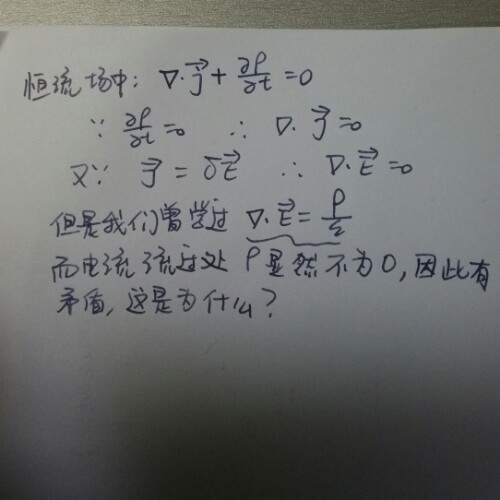 恒流场中: ∇·J⃗ + ∂ρ/∂t = 0
∵ ∂ρ/∂t = 0 ∴ ∇·J⃗ = 0
又∵ J⃗ = δE⃗ ∴ ∇·E⃗ = 0
但是我们曾学过 ∇·E⃗ = ρ/ε
而电流流过处 ρ显然不为0, 因此有
矛盾, 这是为什么?